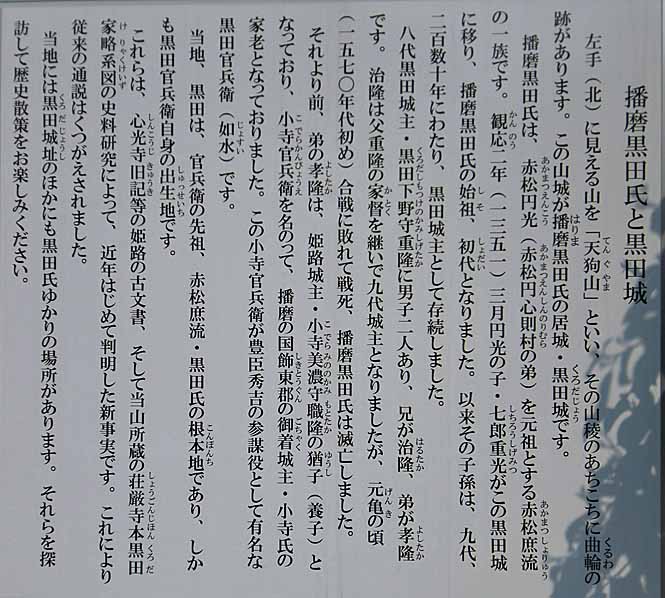 播磨黒田氏と黒田城
左手（北）に見える山を「天狗山」といい、その山稜のあちこちに曲輪の
跡があります。この山城が播磨黒田氏の居城・黒田城です。
播磨黒田氏は、赤松円光（赤松円心則村の弟）を元祖とする赤松庶流
の一族です。観応二年（一三五一）三月円光の子・七郎重光がこの黒田城
に移り、播磨黒田氏の始祖、初代となりました。以来その子孫は、九代、
二百数十年にわたり、黒田城主として存続しました。
八代黒田城主・黒田下野守重隆に男子二人あり、兄が治隆、弟が孝隆
です。治隆は父重隆の家督を継いで九代城主となりましたが、元亀の頃
（一五七〇年代初め）合戦に敗れて戦死、播磨黒田氏は滅亡しました。
それより前、弟の孝隆は、姫路城主・小寺美濃守職隆の猶子（養子）と
なっており、小寺官兵衛を名のって、播磨の国飾東郡の御着城主・小寺氏の
家老となっておりました。この小寺官兵衛が豊臣秀吉の参謀役として有名な
黒田官兵衛（如水）です。
当地、黒田は、官兵衛の先祖、赤松庶流・黒田氏の根本地であり、しか
も黒田官兵衛自身の出生地です。
これらは、心光寺旧記等の姫路の古文書、そして当山所蔵の荘厳寺本黒田
家略系図の史料研究によって、近年はじめて判明した新事実です。これにより
従来の通説はくつがえされました。
当地には黒田城址のほかにも黒田氏ゆかりの場所があります。それらを探
訪して歴史散策をお楽しみください。